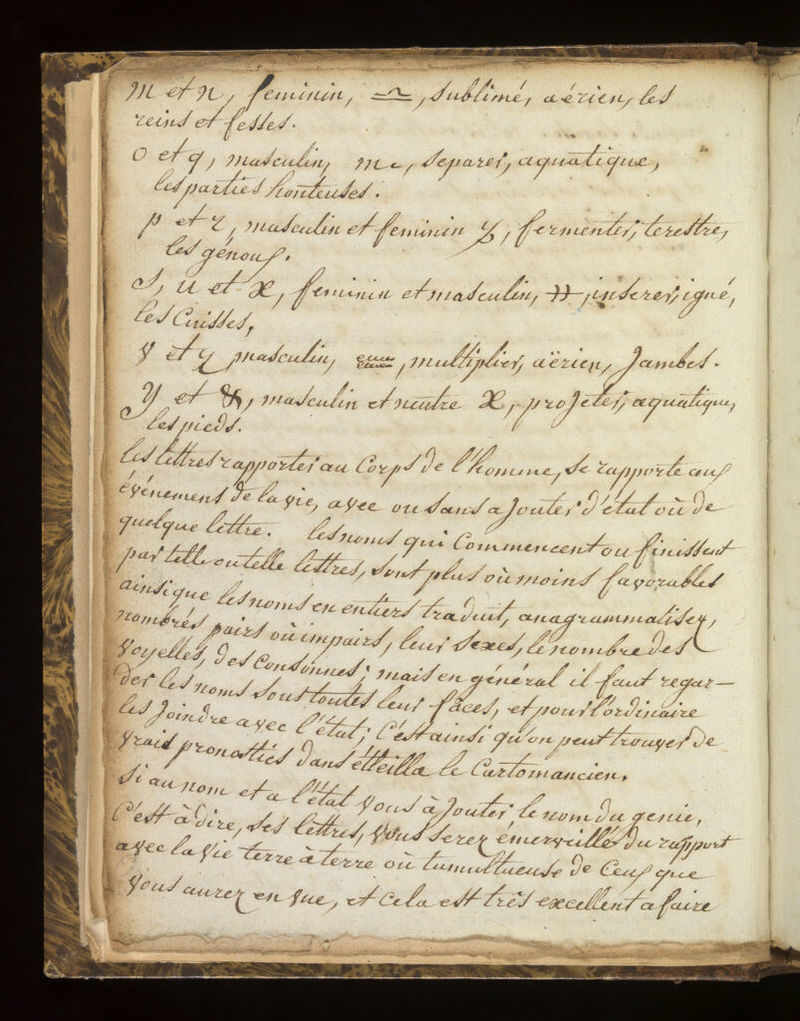 m et n, feminin, ♎, sublimé, aérien, les
reins et fesses.
O et q, masculin, ♏, separer, aquatique,
les parties honteuses.
p et r, masculin et feminin ♑, fermenter, terestre,
les génoux.
S, u et x, feminin et masculin, ♐, inserer, igné,
les Cuisses,
v et y masculin, ♒, multiplier, aërien, Jambes.
y et &, masculin et neutre ♓, projeter, aequatique,
les pieds.
les lettres rapporter au Corps de l'homme, se rapporte aux
evenement de la vie, avec ou sans ajouter d'état où de
quelque lettre. les noms qui Commencent ou finissent
par telle ou telle lettres, sont plus où moins favorables
ainsi que les noms en entiers traduit, anagrammatiser,
nombres pairs où impairs, leur sexes, le nombre des
voyelles, des Consonnes; mais en général il faut regar-
der les noms sous toutes leur faces, et pour l'ordinaire
les Joindre avec l'état; C'est ainsi qu'on peut trouver de
vrais pronostics dans etteilla le Cartomancien,
Si au nom et a l'état vous ajouter le nom du genie,
C'est à dire, ses lettres, vous serez émerveiller du rapport
avec la vie terre à terre où tumultueuse de Ceux que
vous aurez en vue, et Cela est très excellent a faire